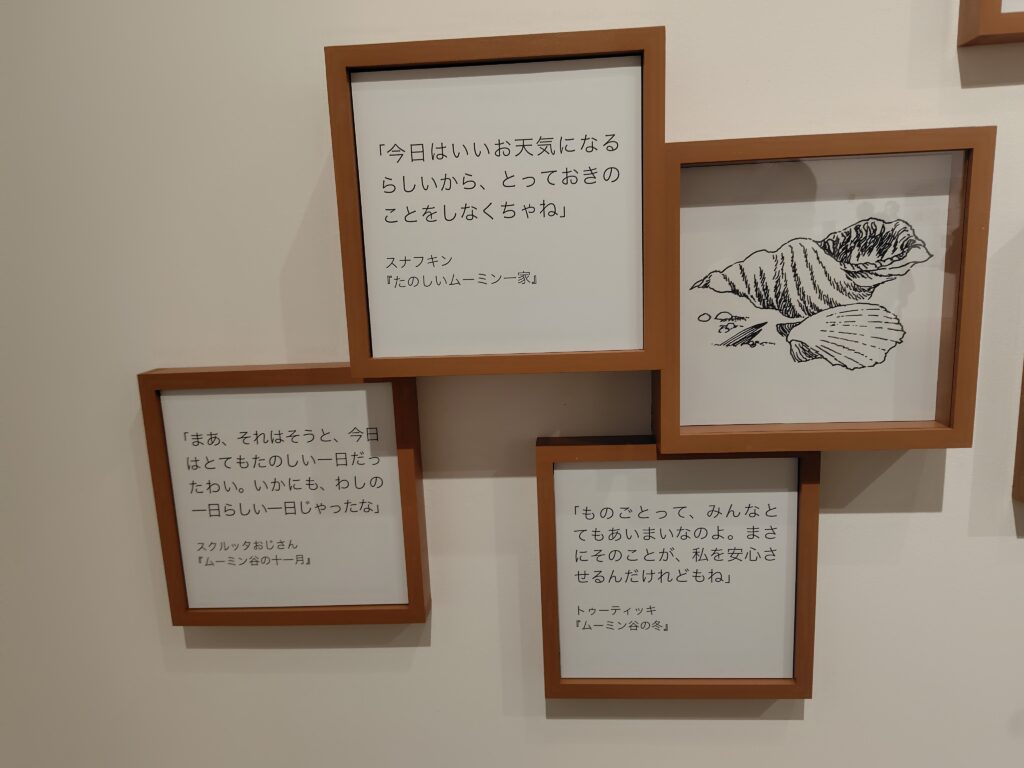 「今日はいいお天気になる
らしいから、とっておきの
ことをしなくちゃね」
スナフキン
『たのしいムーミン一家』
「まあ、それはそうと、今日
はとてもたのしい一日だっ
たわい。いかにも、わしの
一日らしい一日じゃったな」
スクルッタおじさん
『ムーミン谷の十一月』
「ものごとって、みんなと
てもあいまいなのよ。まさ
にそのことが、私を安心さ
せるんだけれどもね」
トゥーティッキ
『ムーミン谷の冬』